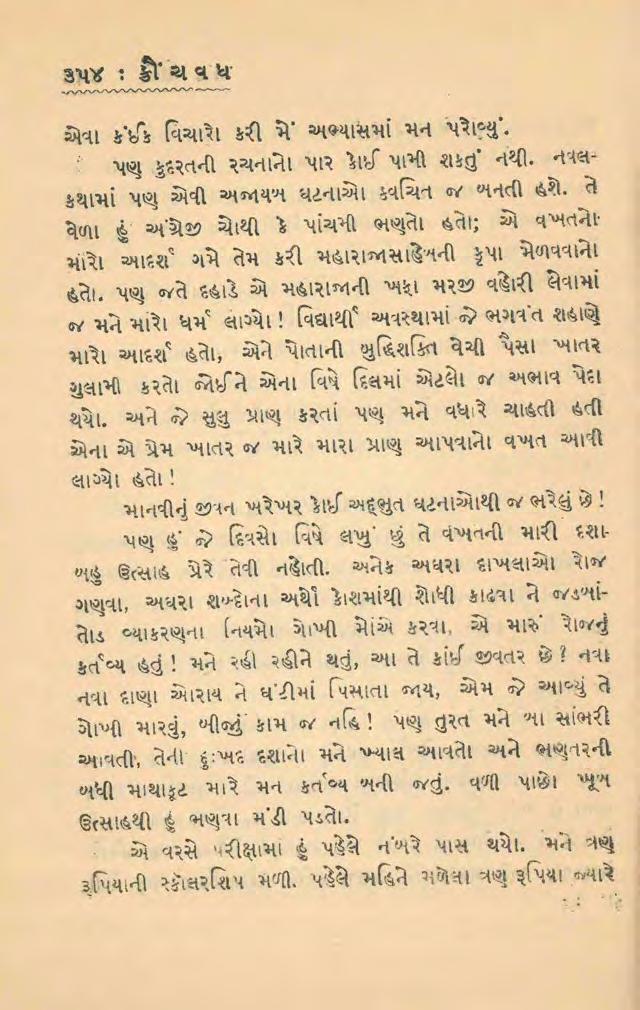 ૩૫૪ : ક્રૌંચવધ
એવા કંઈક વિચારો કરી મેં અભ્યાસમાં મન પરોવ્યું.
પણ કુદરતની રચનાનો પાર કોઈ પામી શકતું નથી. નવલ-
કથામાં પણ એવી અજાયબ ઘટનાઓ ક્વચિત જ બનતી હશે. તે
વેળા હું અંગ્રેજી ચોથી કે પાંચમી ભણતો હતો; એ વખતનો
મારો આદર્શ ગમે તેમ કરી મહારાજાસાહેબની કૃપા મેળવવાનો
હતો. પણ જતે દહાડે એ મહારાજાની ખફા મરજી વહોરી લેવામાં
જ મને મારો ધર્મ લાગ્યો! વિદ્યાર્થી અવસ્થામાં જે ભગવંત શહાણે
મારો આદર્શ હતો, એને પોતાની બુદ્ધિશક્તિ વેચી પૈસા ખાતર
ગુલામી કરતો જોઈને એના વિષે દિલમાં એટલો જ અભાવ પેદા
થયો. અને જે સુલુ પ્રાણ કરતાં પણ મને વધારે ચાહતી હતી
એના એ પ્રેમ ખાતર જ મારે મારા પ્રાણ આપવાનો વખત આવી
લાગ્યો હતો!
માનવીનું જીવન ખરેખર કોઈ અદ્‌ભુત ઘટનાઓથી જ ભરેલું છે!
પણ હું જે દિવસો વિષે લખું છું તે વખતની મારી દશા
બહુ ઉત્સાહ પ્રેરે તેવી નહોતી. અનેક અઘરા દાખલાઓ રોજ
ગણવા, અઘરા શબ્દોના અર્થો કોશમાંથી શોધી કાઢવા ને જડબાં-
તોડ વ્યાકરણના નિયમો ગોખી મોંએ કરવા, એ મારું રોજનું
કર્તવ્ય હતું! મને રહી રહીને થતું, આ તે કાંઈ જીવતર છે? નવા
નવા દાણા ઓરાય ને ઘંટીમાં પિસાતા જાય, એમ જે આવ્યું તે
ગોખી મારવું, બીજું કામ જ નહિ! પણ તુરત મને મા સાંભરી
આવતી, તેની દુઃખદ દશાનો મને ખ્યાલ આવતો અને ભણતરની
બધી માથાકૂટ મારે મન કર્તવ્ય બની જતું. વળી પાછો ખૂબ
ઉત્સાહથી હું ભણવા મંડી પડતો.
એ વરસે પરીક્ષામાં હું પહેલે નંબરે પાસ થયો. મને ત્રણ
રૂપિયાની સ્કોલરશિપ મળી. પહેલે મહિને મળેલા ત્રણ રૂપિયા જ્યારે